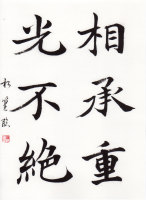 相承重
光不絶